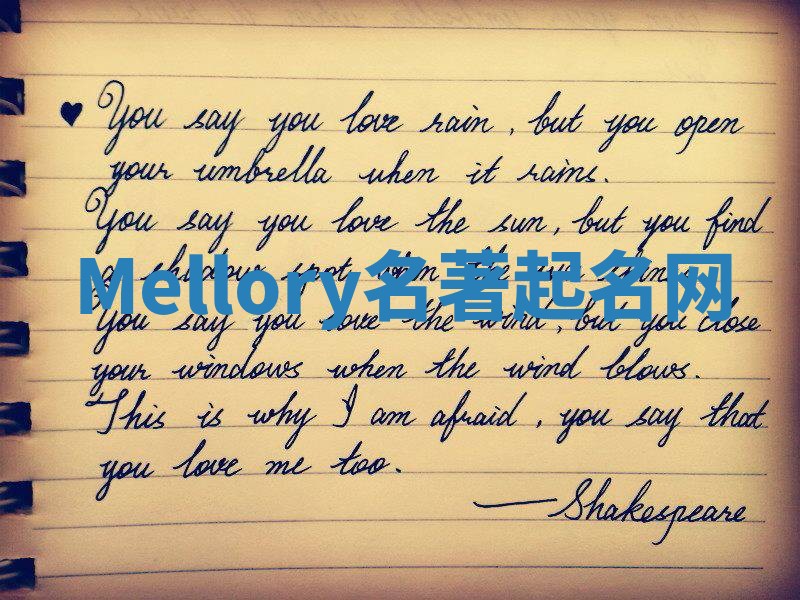 ♥ You say you love rain, but you open
your umbrella when it rains.
You say you love the sun, but you find
a shadow spot when the sun shines.
Mellory名著起名网
You say you love the wind, but you close
your windows when the wind blows.
This is why I am afraid, you say that
you love me too.
—Shakespeare